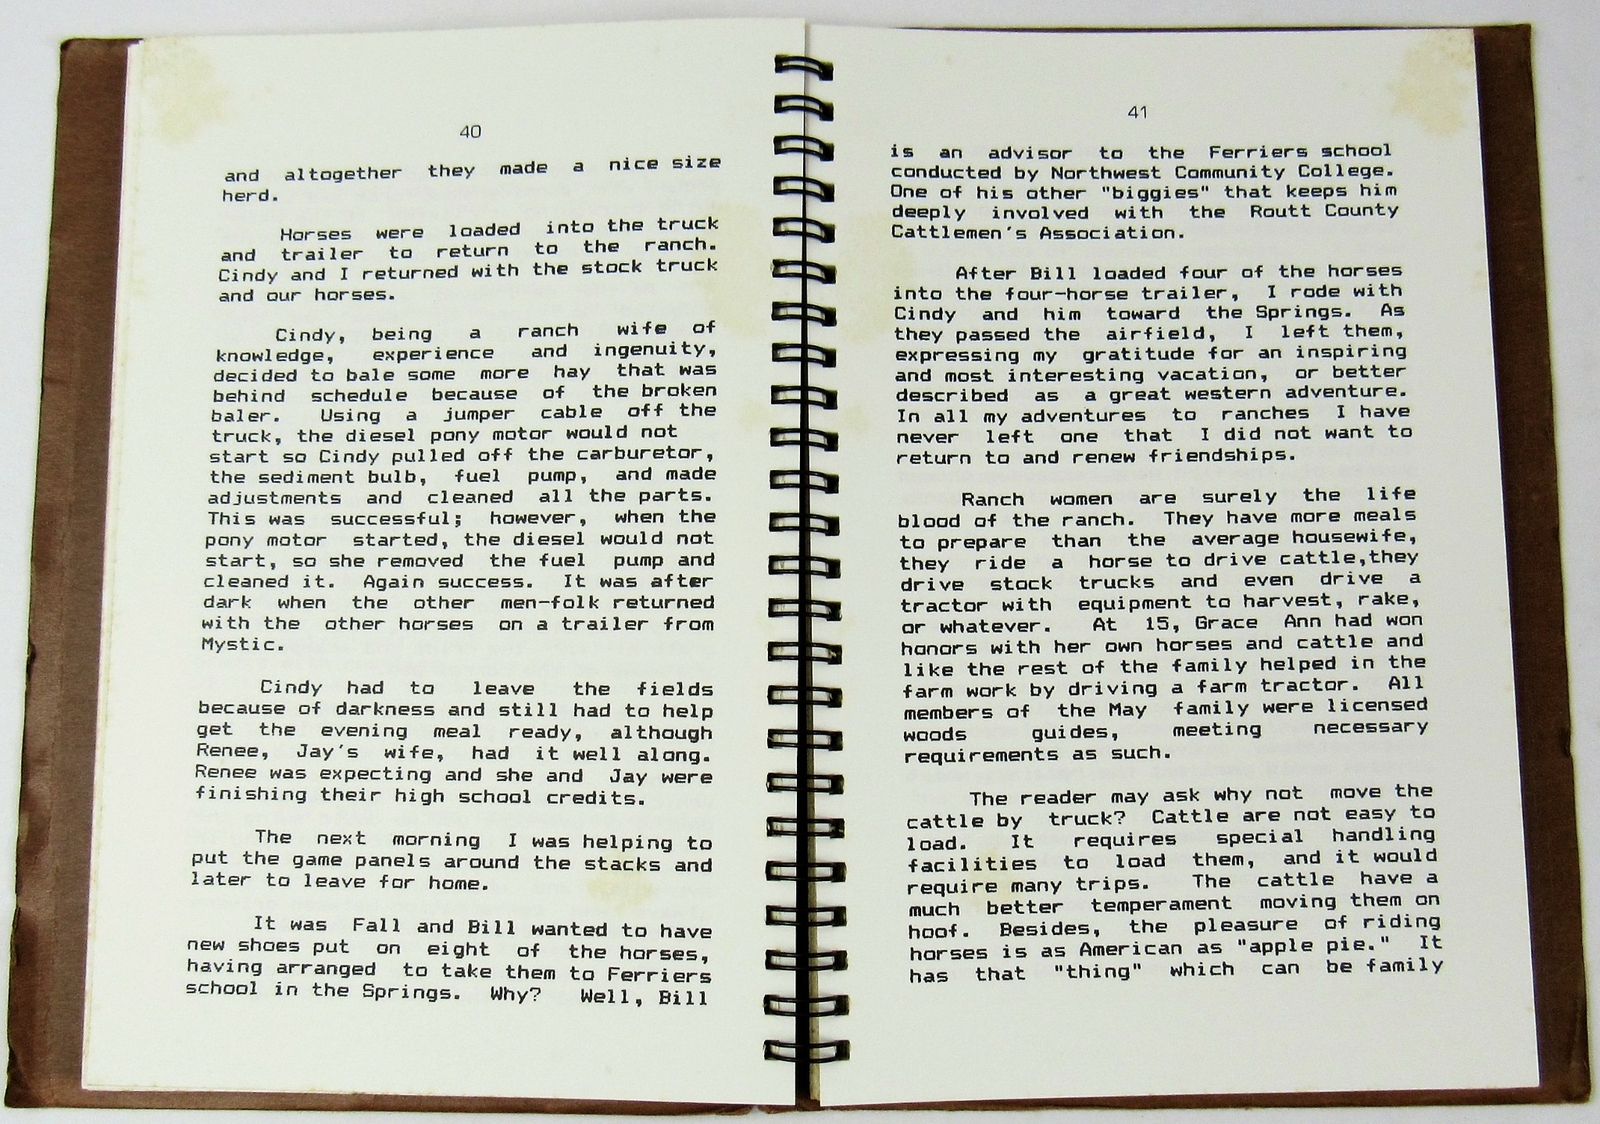 40
and altogether they made a nice size
herd.
Horses were loaded into the truck
and trailer to return to the ranch.
Cindy and I returned with the stock truck
and our horses.
Cindy, being a ranch wife of
knowledge, experience and ingenuity,
decided to bale some more hay that was
behind schedule because of the broken
baler. Using a jumper cable off the
truck, the diesel pony motor would not
start so Cindy pulled off the carburetor,
the sediment bulb, fuel pump, and made
adjustments and cleaned all the parts.
This was successful; however, when the
pony motor started, the diesel would not
start, so she removed the fuel pump and
cleaned it. Again success. It was after
dark when the other men-folk returned
with the other horses on a trailer from
Mystic.
Cindy had to leave the fields
because of darkness and still had to help
get the evening meal ready, although
Renee, Jay's wife, had it well along.
Renee was expecting and she and Jay were
finishing their high school credits.
The next morning I was helping to
put the game panels around the stacks and
later to leave for home.
It was Fall and Bill wanted to have
new shoes put on eight of the horses,
having arranged to take them to Ferriers
school in the Springs. Why? Well, Bill
41
is an advisor to the Ferriers school
conducted by Northwest Community College.
One of his other "biggies" that keeps him
deeply involved with the Routt County
Cattlemen's Association.
After Bill loaded four of the horses
into the four-horse trailer, I rode with
Cindy and him toward the Springs. As
they passed the airfield, I left them,
expressing my gratitude for an inspiring
and most interesting vacation, or better
described as a great western adventure.
In all my adventures to ranches I have
never left one that I did not want to
return to and renew friendships.
Ranch women are surely the life
blood of the ranch. They have more meals
to prepare than the average housewife,
they ride a horse to drive cattle,they
drive stock trucks and even drive a
tractor with equipment to harvest, rake,
or whatever. At 15, Grace Ann had won
honors with her own horses and cattle and
like the rest of the family helped in the
farm work by driving a farm tractor. All
members of the May family were licensed
woods guides, meeting necessary
requirements as such.
The reader may ask why not move the
cattle by truck? Cattle are not easy to
load. It requires special handling
facilities to load them, and it would
require many trips. The cattle have a
much better temperament moving them on
hoof. Besides, the pleasure of riding
horses is as American as "apple pie." It
has that "thing" which can be family